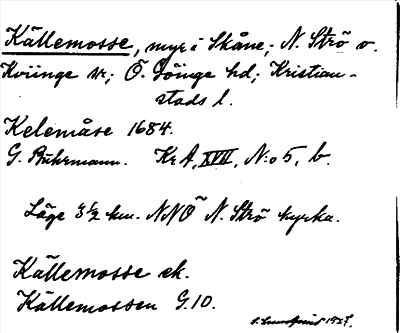 Källemosse, myr i Skåne; N. Strö o.
Kviinge sr; Ö. Göinge hd; Kristian-
stads l.
Kelemåse 1684.
G. Buhrmann. KrA, XVII, N:o 5, b.
Läge 3 1/2 km. NNÖ N. Strö kyrka.
Källemosse ek.
Källemossen G.10.
1927.